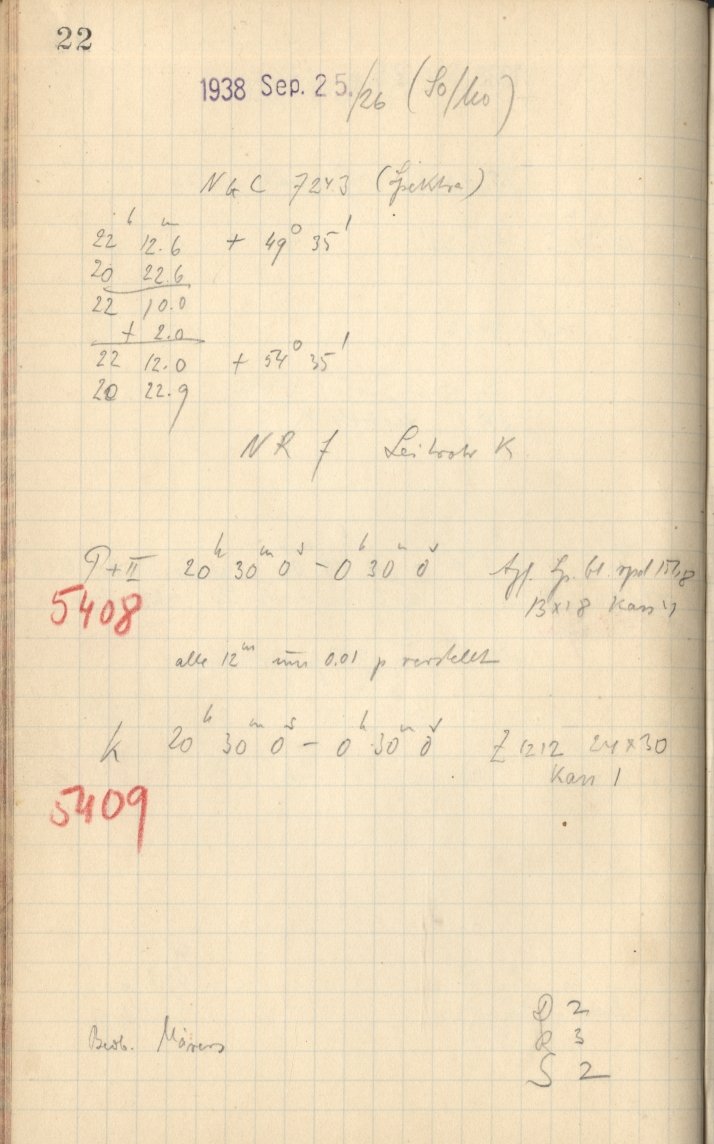 22
1938 Sep. 25./26 (So/Mo)
NGC 7243 (Spektra)
22 h 12.6 m + 49° 35'
20 22.6
22 10.0
+ 2.0
22 12.0 + 54° 35'
20 22.9
NR 7 Leitrohr K
P+II 20h 30m 0s – 0h 30m 0s Agf. Sp. bl.
5408 13x18 Kass
alle 12m um 0.01 p verstellt
K 20h 30m 0s – 0h 30m 0s Z 1212 24x30
Kass 1
5409
D 2
R 3
Beob.
S 2